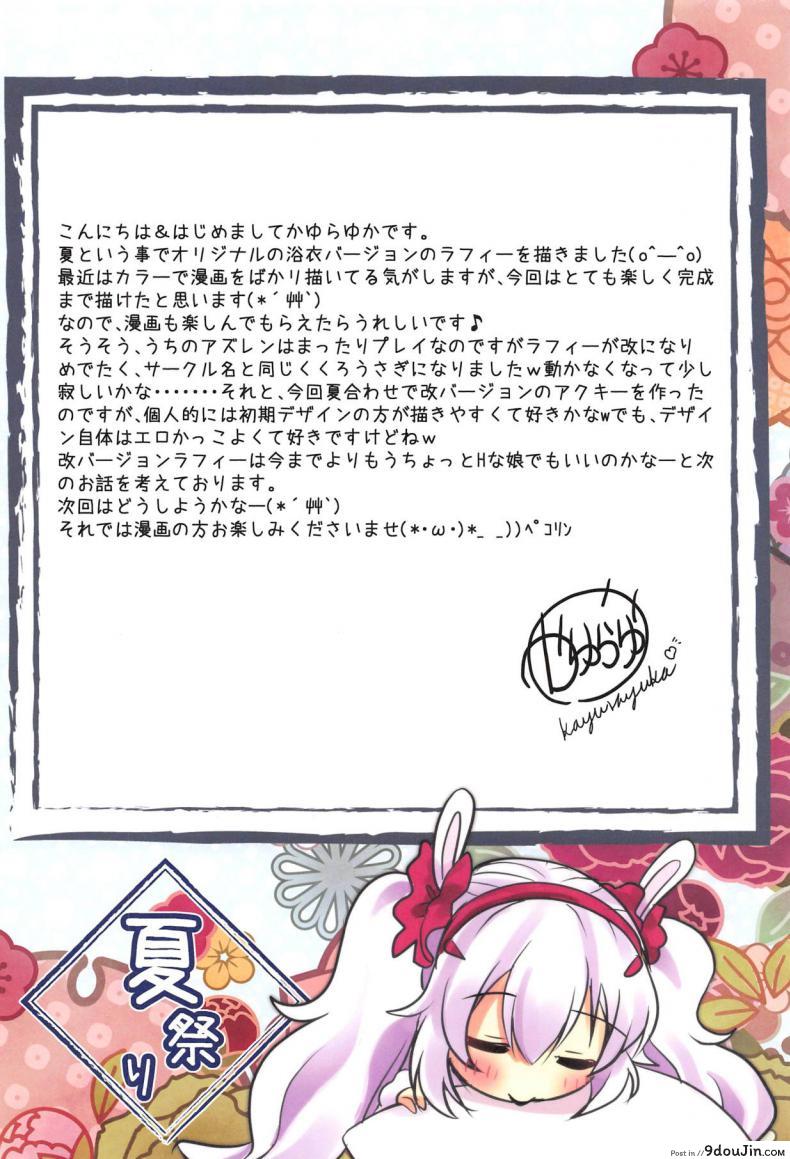 こんにちは&はじめましてかゆらゆかです。
夏という事でオリジナルの浴衣バージョンのラフィーを描きました(o^―^o)
最近はカラーで漫画をばかり描いてる気がしますが、今回はとても楽しく完成
まで描けたと思います(*´艸`)
なので、漫画も楽しんでもらえたらうれしいです♪
そうそう、うちのアズレンはまったりプレイなのですがラフィーが改になり
めでたく、サークル名と同じくくろうさぎになりましたw動かなくなって少し
寂しいかな・・・・・・・それと、今回夏合わせで改バージョンのアクキーを作った
のですが、個人的には初期デザインの方が描きやすくて好きかなwでも、デザイ
ン自体はエロかっこよくて好きですけどねw
改バージョンラフィーは今までよりもうちょっとHな娘でもいいのかなーと次
のお話を考えております。
次回はどうしようかなー(*´艸`)
それでは漫画の方お楽しみくださいませ(*・ω・)*_ _))ﾍﾟｺﾘﾝ
かゆらゆか
kayurayuka
夏祭り
Post in // 9douJin.com